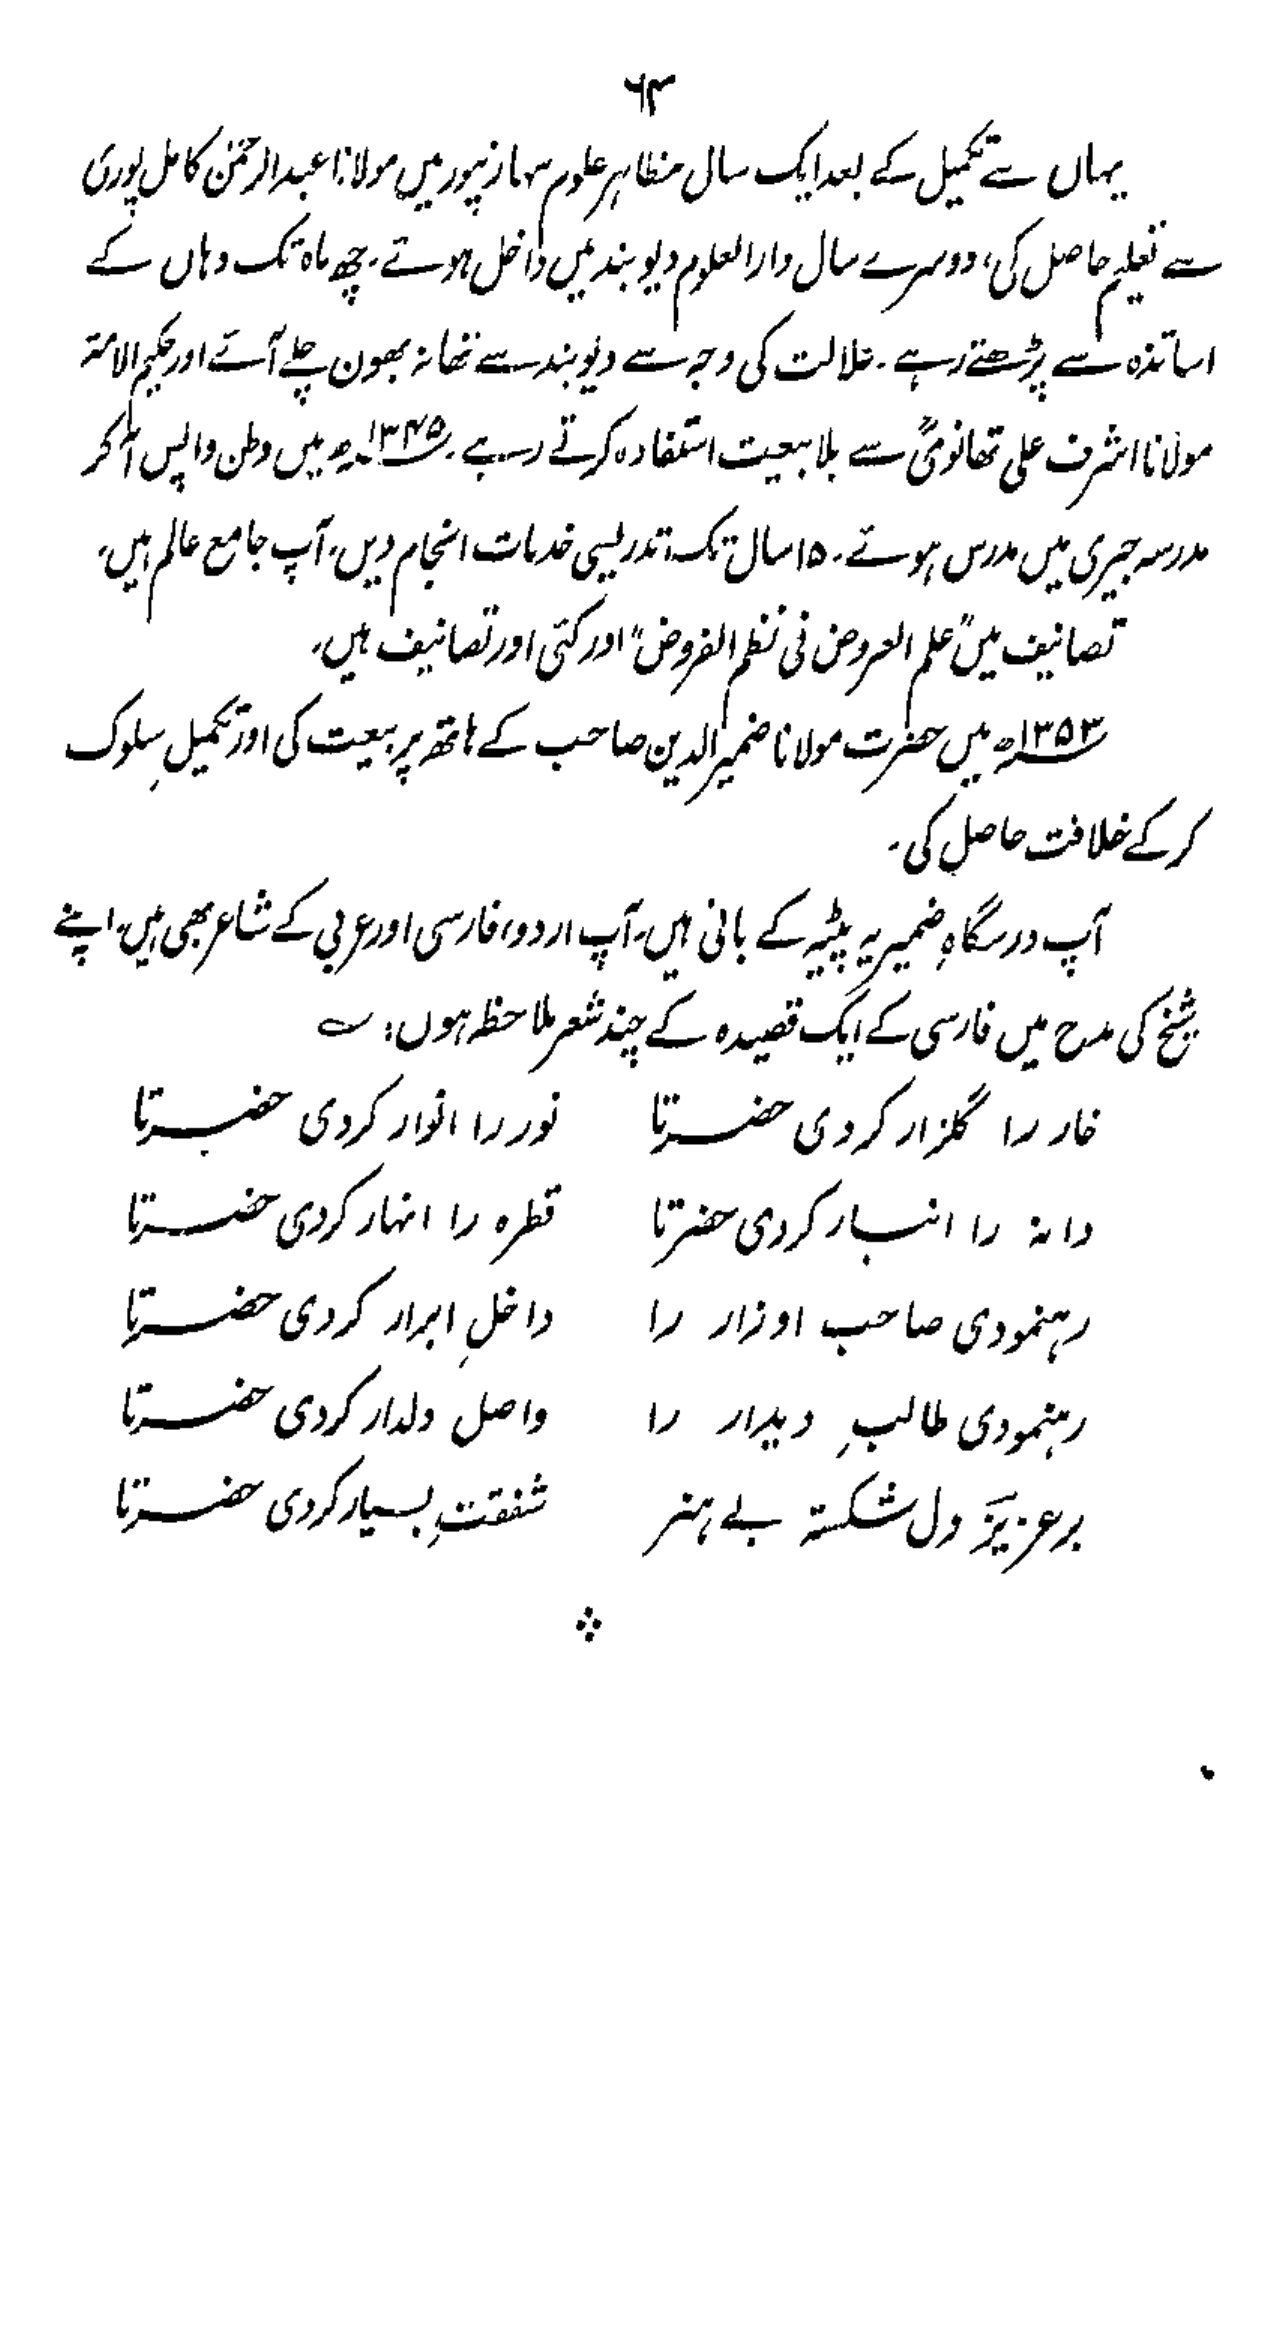 ۶۴
یہاں سے تکمیل کے بعد ایک سال مظاہر علوم سہارنپور میں مولانا عبدالرحمٰن کامل پوری
سے تعلیم حاصل کی، دوسرے سال دارالعلوم دیوبند میں داخل ہوئے۔ چھ ماہ تک وہاں کے
اساتذہ سے پڑھتے رہے۔ علالت کی وجہ سے دیوبند سے تھانہ بھون چلے آئے اور حکیم الامۃ
مولانا اشرف علی تھانویؒ سے بلا بیعت استفادہ کرتے رہے۔ ۱۳۴۵ھ میں وطن واپس آ کر
مدرسہ جیری میں مدرس ہوئے۔ ۱۵ سال تک تدریسی خدمات انجام دیں، آپ جامع عالم ہیں،
تصانیف میں "علم العروض فی نظم الفروض" اور کئی اور تصانیف ہیں۔
۱۳۵۳ھ میں حضرت مولانا ضمیر الدین صاحب کے ہاتھ پر بیعت کی اور تکمیلِ سلوک
کر کے خلافت حاصل کی۔
آپ درسگاہِ ضمیریہ پٹیہ کے بانی ہیں، آپ اردو، فارسی اور عربی کے شاعر بھی ہیں، اپنے
شیخ کی مدح میں فارسی کے ایک قصیدہ کے چند شعر ملاحظہ ہوں: ؎
خار را گلزار کردی حضرتا نور را انوار کردی حضرتا
دانہ را انبار کردی حضرتا قطرہ را انہار کردی حضرتا
رہنمودی صاحب اوزار را داخلِ ابرار کردی حضرتا
رہنمودی طالبِ دیدار را واصل دلدار کردی حضرتا
بر عزیز دل شکستہ بے ہنر شفقتِ بسیار کردی حضرتا